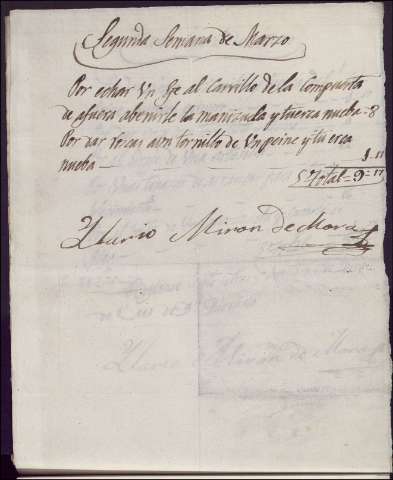 Segunda Semana de Marzo
Por echar Un Eje al Carrillo de la Compuerta
de afuera abenirle la manizuela y tuerca nueba = 8
Por dar roscas a un tornillo de Un peine y tuerca
nueba — 1=17
Total = 9=17
Ylario Miron de Mora